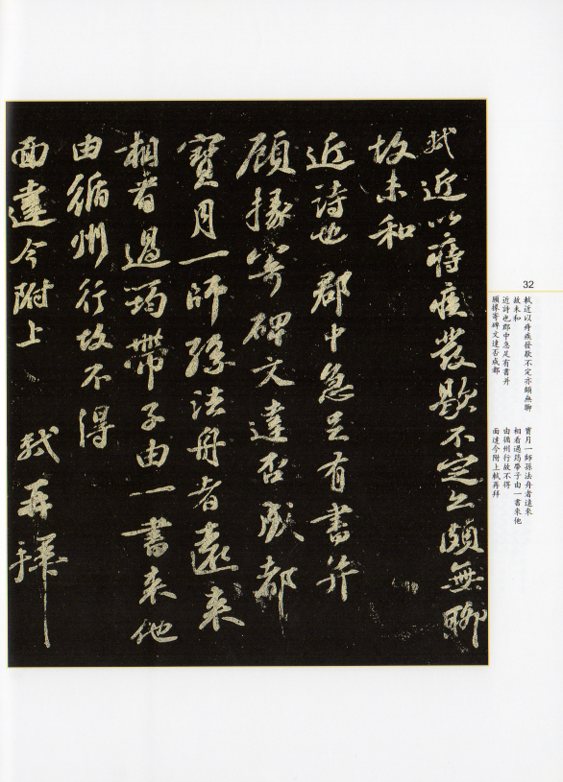 32
軾近以痔疾發歇不定亦頗無聊
故未和
近詩也郡中急足有書并
顧掾寄碑文達否成都
寶月一師孫法舟者遠來
相看過筠帶子由一書來他
由循州行故不得
面達今附上軾再拜
軾近以痔疾發歇不定亦頗無聊
故未和
近詩也郡中急足有書并
顧掾寄碑文達否成都
寶月一師孫法舟者遠來
相看過筠帶子由一書來他
由循州行故不得
面達今附上 軾再拜